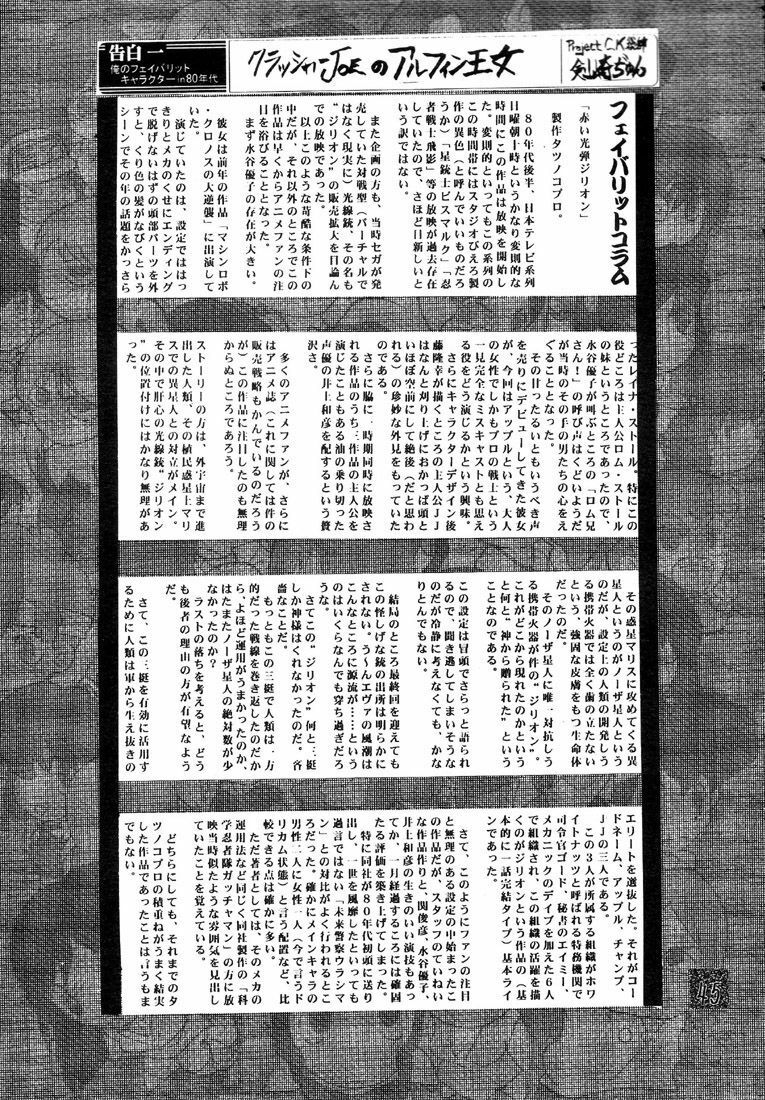 告白一
俺のフェイバリット
キャラクター in 80年代
クラッシャーJOEのアルフィン王女
Project C.K
フェイバリットコラム
「赤い光弾ジリオン」
製作タツノコプロ。
８０年代後半、日本テレビ系列
日曜朝十時というかなり変則的な
時間にこの作品は放映を開始し
た。変則的といってもこの系列の
この時間帯にはスタジオぴえろ製
作の異色（と呼んでいいものだろ
うか）「星銃士ビスマルク」「忍
者戦士飛影」等の放映が過去存在
していたので、さほど目新しいと
いう訳ではない。
また企画の方も、当時セガが発
売していた対戦型（バーチャルで
はなく現実に）光線銃、その名も
“ジリオン”の販売拡大を目論ん
での放映であった。
以上このような苛酷な条件下の
中だが、それ以外のところでこの
作品は早くからアニメファンの注
目を浴びることとなった。
まず水谷優子の存在が大きい。
彼女は前年の作品「マシンロボ
・クロノスの大逆襲」に出演して
いた。
演じていたのは、設定でははっ
きりとメカのくせにエンディング
で脱げないはずの頭部パーツを外
すと、くり色の髪がなびくという
シーンでその年の話題をかっさら
ったレイナ・ストール。特にこの
役どころは主人公ロム・ストール
の妹というところであったので、
水谷優子が叫ぶところの「ロム兄
さん！」の呼び声はくどいようだ
が当時のその手の男たちの心をえ
ぐることとなった。
その甘ったるいともいうべき声
を売りにデビューしてきた彼女
が、今回はアップルという、大人
の女性でしかもプロの戦士という
一見完全なミスキャストとも思え
る役をどう演じるかという興味。
さらにキャラクターデザイン後
藤隆幸が描くところの主人公ＪＪ
はなんと刈り上げにおかっぱ頭と
いうほぼ空前にして絶後（だと思わ
れる）の珍妙な外見をもっていた
のである。
さらに脇に一時期同時に放映さ
れる作品のうち三作品の主人公を
演じたこともある油の乗り切った
声優の井上和彦を配するという贅
沢さ。
多くのアニメファンが、さらに
はアニメ誌（これに関しては件の
販売戦略もかんでいるのだろう
が）この作品に注目したのも無理
からぬところであろう。
ストーリーの方は、外宇宙まで進
出した人類、その植民惑星上マリ
スでの異星人との対立がメイン。
その中で肝心の光線銃“ジリオン
”の位置付けにはかなり無理があ
った。
その惑星マリスに攻めてくる異
星人というのがノーザ星人という
のだが、設定上の人類の開発しう
る携帯火器では全く歯の立たない
という、強固な皮膚をもつ生命体
だったのだ。
そのノーザ星人に唯一対抗しう
る携帯火器が件の“ジリオン”。
これがどこから現れたのかという
と何と“神から贈られた”という
ことなのである。
この設定は冒頭でさらっと語られ
るので、聞き逃してしまいそうな
のだが冷静に考えなくても、かな
りとんでもない。
結局のところ最終回を迎えても
この怪しげな銃の出所は明らかに
されない。う～んエヴァの風潮は
こんなところに源流が……という
のはいくらなんでも穿ち過ぎだろ
うな。
さてこの“ジリオン”何と三挺
しか神様はくれなかったのだ。吝
嗇なことだ。
もっともこの三挺で人類は一方
的だった戦線を巻き返したのだか
ら、よほど運用がうまかったのか、
はたまたノーザ星人の絶対数が少
なかったのか？
ラストの落ちを考えると、どう
も後者の理由の方が有望なよう
だ。
さて、この三挺を有効に活用す
るために人類は軍から生え抜きの
エリートを選抜した。それがコー
ドネーム、アップル、チャンプ、
ＪＪの三人である。
この３人が所属する組織がホワ
イトナッツと呼ばれる特務機関で
司令官ゴード、秘書のエイミー、
メカニックのデイブを加えた６人
で組織され、この組織の活躍を描
くのがジリオンという作品の（基
本的に一話完結タイプ）基本ライ
ンであった。
さて、このようにファンの注目
と無理のある設定の中始まったこ
の作品だが、スタッフのていねい
な作品作りと、関俊彦、水谷優子、
井上和彦の生きのいい演技もあっ
てか、一月経過するころには確固
たる評価を築き上げてしまった。
特に同社が８０年代初頭に送り
出し、一世を風靡したといっても
過言ではない「未来警察ウラシマ
ン」との対比がよく行われるとこ
ろだった。確かにメインキャラの
男性二人に女性一人（今で言うド
リカム状態）と言う配置など、比
較できる点は確かに多い。
ただ著者としては、そのメカの
運用法など同じく同社製作の「科
学忍者隊ガッチャマン」の方に放
映当時似たような雰囲気を見出し
ていたことを覚えている。
どちらにしても、それまでのタ
ツノコプロの積重ねがうまく結実
した作品であったことは言うもま
でもない。
15